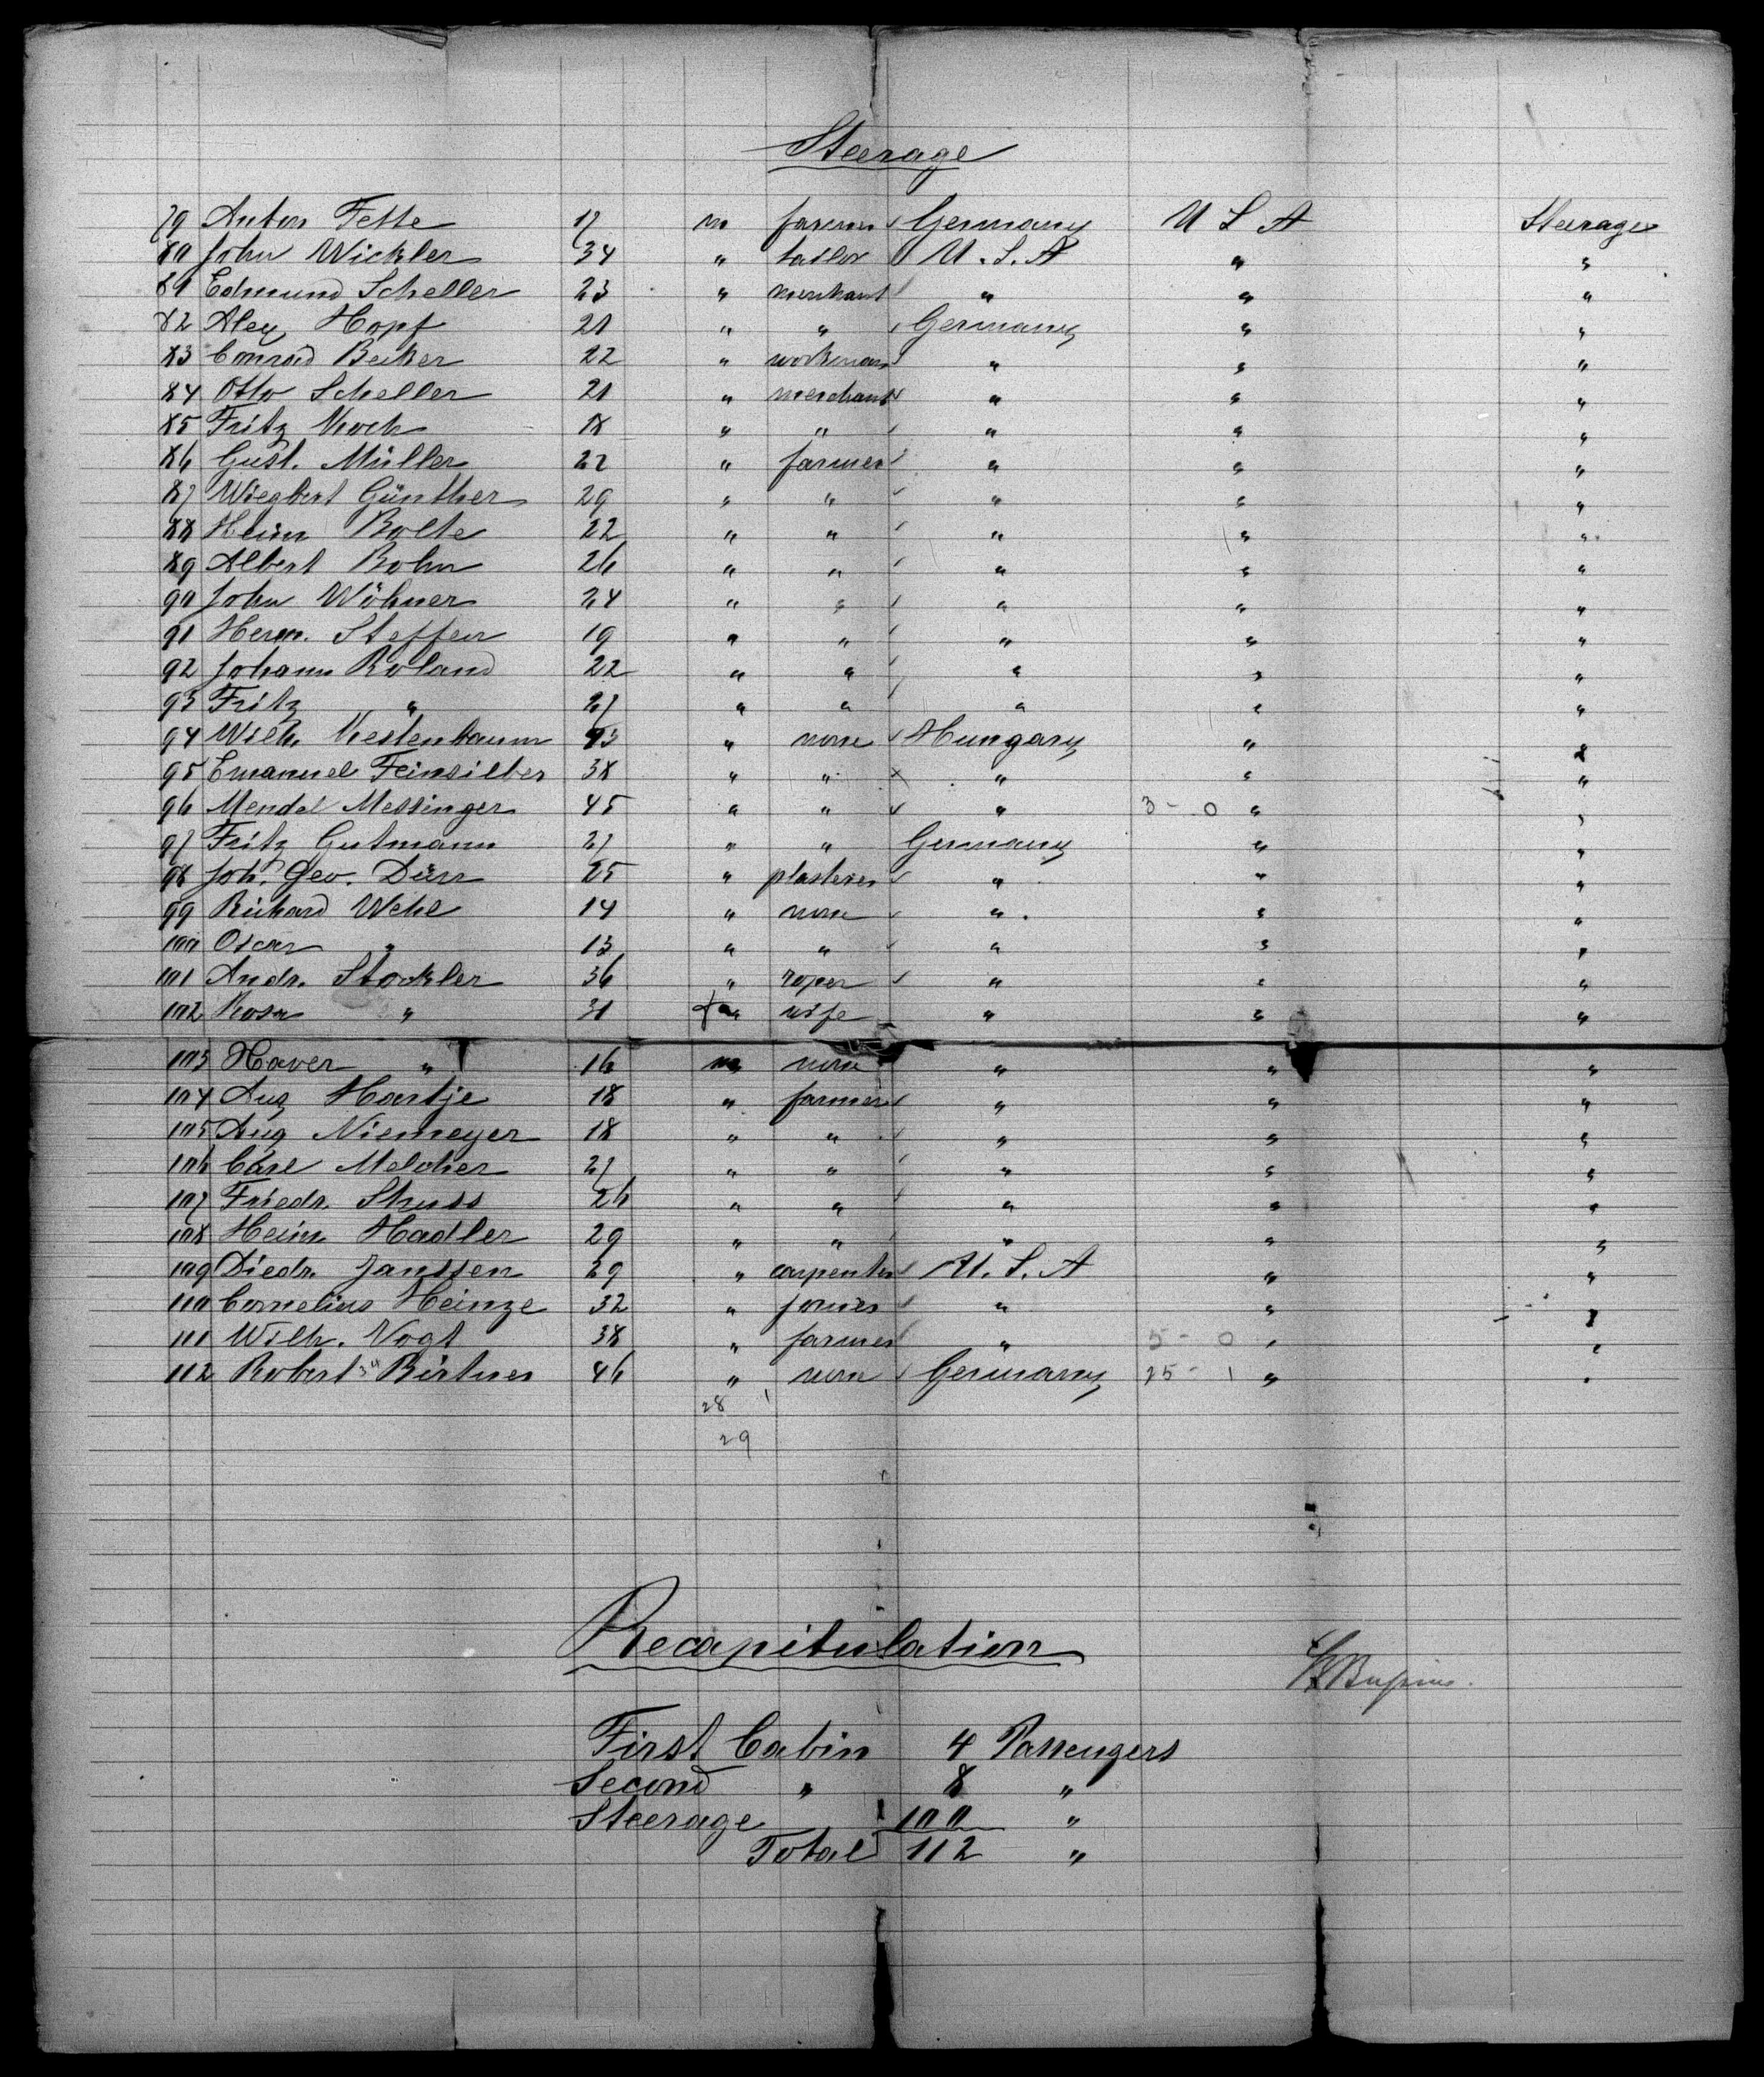 Steerage
79 Anton Fette 17 m farmer Germany U S A Steerage
80 John Wickler 34 " tailor U. S. A " "
81 Edmund Scheller 23 " merchant " " "
82 Alex Hopf 21 " " Germany " "
83 Conrad Becker 22 " workman " " "
84 Otto Scheller 21 " merchant " " "
85 Fritz Koch 18 " " " " "
86 Gust. Müller 22 " farmer " " "
87 Wiegbert Günther 29 " " " " "
88 Heinr Bolte 22 " " " " "
89 Albert Bohn 26 " " " " "
90 John Wöhner 24 " " " " "
91 Herm. Steffen 19 " " " " "
92 Johann Roland 22 " " " " "
93 Fritz " 27 " " " " "
94 Wilh. Kestenbaum 43 " none Hungary " "
95 Emanuel Feinsilber 38 " " " " "
96 Mendel Messinger 45 " " " 3 - 0 " "
97 Fritz Gutmann 27 " " Germany " "
98 Joh. Geo. Dürr 25 " plasterer " " "
99 Richard Wehl 14 " none " " "
100 Oscar " 13 " " " " "
101 Andr. Stockler 36 " roper " " "
102 Rosa " 31 f wife " " "
103 Xaver " 16 m none " " "
104 Aug Hartje 18 " farmer " " "
105 Aug Niemeyer 18 " " " " "
106 Carl Melcher 27 " " " " "
107 Friedr. Stuss 26 " " " " "
108 Heinr Hadler 29 " " " " "
109 Diedr. Janssen 29 " carpenter U. S. A " "
110 Cornelius Heinze 32 " joiner " " "
111 Wilh. Vogt 38 " farmer " 5 - 0 " "
112 Robert Birtner 46 " none Germany 25 - 1 " "
28 1
29
Recapitulation
First Cabin 4 Passengers
Second " 8 "
Steerage 100 "
Total 112 "